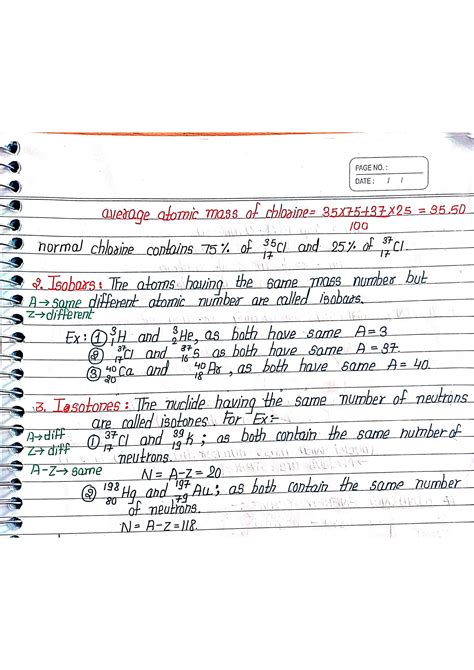 PAGE NO. :
DATE : / /
average atomic mass of chlorine = 35×75+37×25 = 35.50
100
normal chlorine contains 75% of ³⁵₁₇Cl and 25% of ³⁷₁₇Cl.
2. Isobars: The atoms having the same mass number but
A→same different atomic number are called isobars.
Z→different
Ex: ① ³₁H and ³₂He, as both have same A=3
② ³⁷₁₇Cl and ³⁷₁₆S as both have same A=37.
③ ⁴⁰₂₀Ca and ⁴⁰₁₈Ar, as both have same A=40.
3. Isotones: The nuclide having the same number of neutrons
are called isotones. For Ex:-
A→diff ① ³⁷₁₇Cl and ³⁹₁₉K; as both contain the same number of
Z→diff neutrons.
A-Z→same N = A-Z = 20
② ¹⁹⁸₈₀Hg and ¹⁹⁷₇₉Au; as both contain the same number
of neutrons.
N = A-Z = 118.